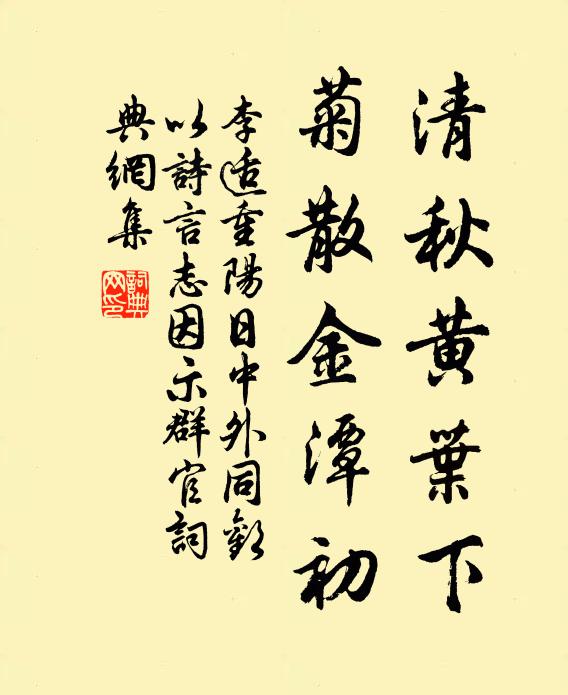 清秋黄葉下
菊散金潭初
李适重陽日中外同歡
以詩言志因示群官詞
典網集
詞典
网印